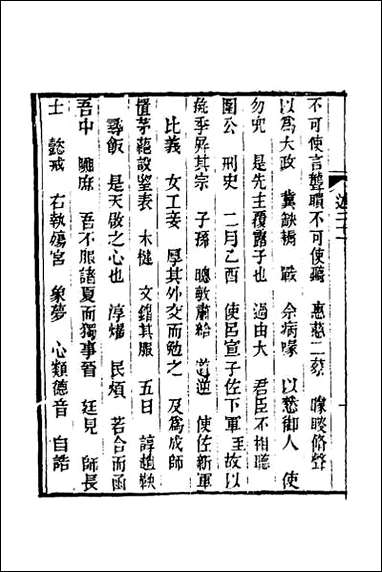 不可使言聾聵不可使聽 惠慈二蔡 矇瞍脩聲
以爲大政 冀缺耨 戰 余病喙 以憖御人 使
勿兜 是先主覆露子也 過由大 君臣不相聽
圉公 刑史 二月乙酉 使呂宣子佐下軍王故以
彘季屏其宗 子孫 聰敏肅給 逆 使佐新軍
比義 女工妾 厚其外交而勉之 及爲成師
置茅蕝設望表 木楗 文錯其服 五日 諄趙鞅
尋飯 是天啟之心也 淳燿 民煩 若合而函
吾中 麻 吾不服諸夏而獨事晉 廷見 師長
士 懿戒 右執殤宮 象夢 心類德音 自誥